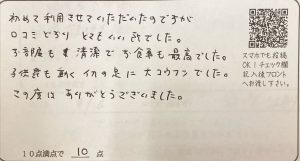 初めて利用させていただいたのですが
口コミどおり とてもいい所でした。
お部屋も清潔で お食事も最高でした。
子供達も動くイカの足に大コウフンでした。
この度は ありがとうございました。
スマホでも投稿
OK！チェック欄
記入後フロント
へお渡し下さい。
10点満点で 10 点